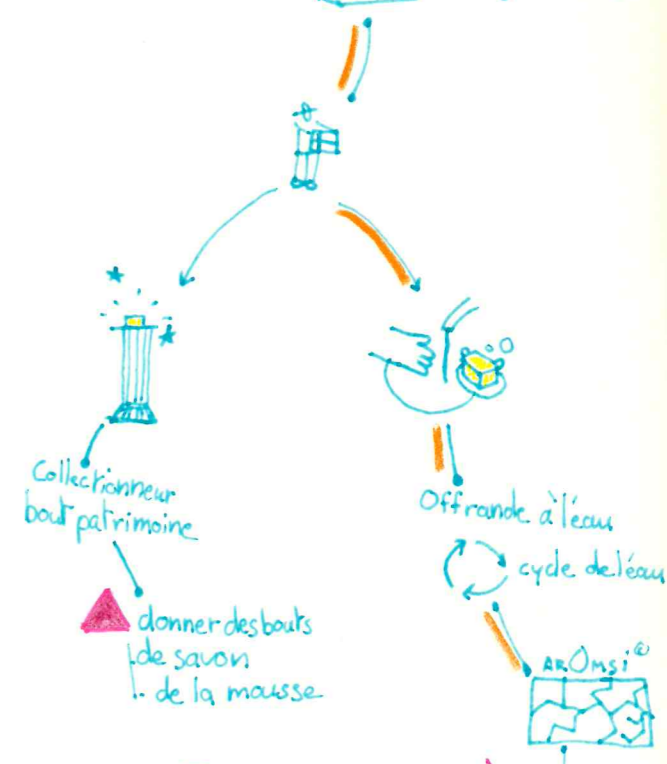 Collectionneur
bout patrimoine
donner des bouts
de savon
de la mousse
Offrande à l'eau
cycle de l'eau
AROMSI @